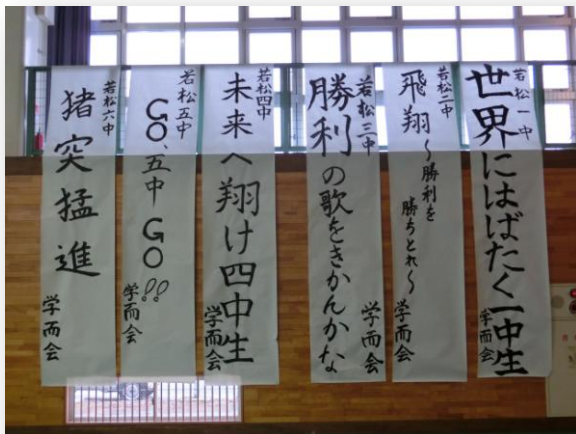 若松一中
世界にはばたく一中生
学而会
若松二中
飛翔～勝利を
勝ちとれ～
学而会
若松三中
勝利の歌をきかんかな
学而会
若松四中
未来へ翔け四中生
学而会
若松五中
GO、五中 GO!!
学而会
若松六中
猪突猛進
学而会